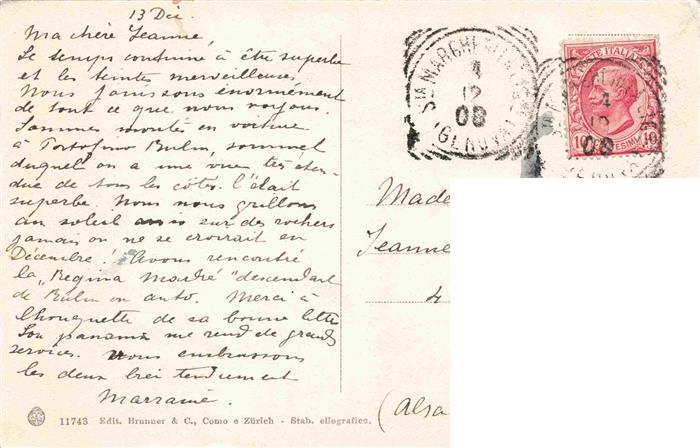 13 Déc.
Ma chère Jeanne,
Le temps continue à être superbe
et les teintes merveilleuses.
Nous jouissons énormément
de tout ce que nous voyons.
Sommes montés en voiture
à Portofino Kulm, sommet
duquel on a une vue très éten-
due de tous les côtés. C'était
superbe. Nous nous grillons
au soleil assis sur des rochers
jamais on ne se croirait en
Décembre! Avons rencontré
la "Regina Madre" descendant
de Kulm en auto. Merci à
Chouquette de sa bonne lettre
Son panama me rend de grands
services. Vous embrassons
les deux bien tendrement
Marraine.
11743 Edit. Brunner & C., Como e Zürich - Stab. eliografico.
Sta MARGHERITA
4
12
08
(GENOVA)
POSTE ITALIANE
4
12
08
10 CENTESIMI 10
Made
Jeanne
4
(Alsa